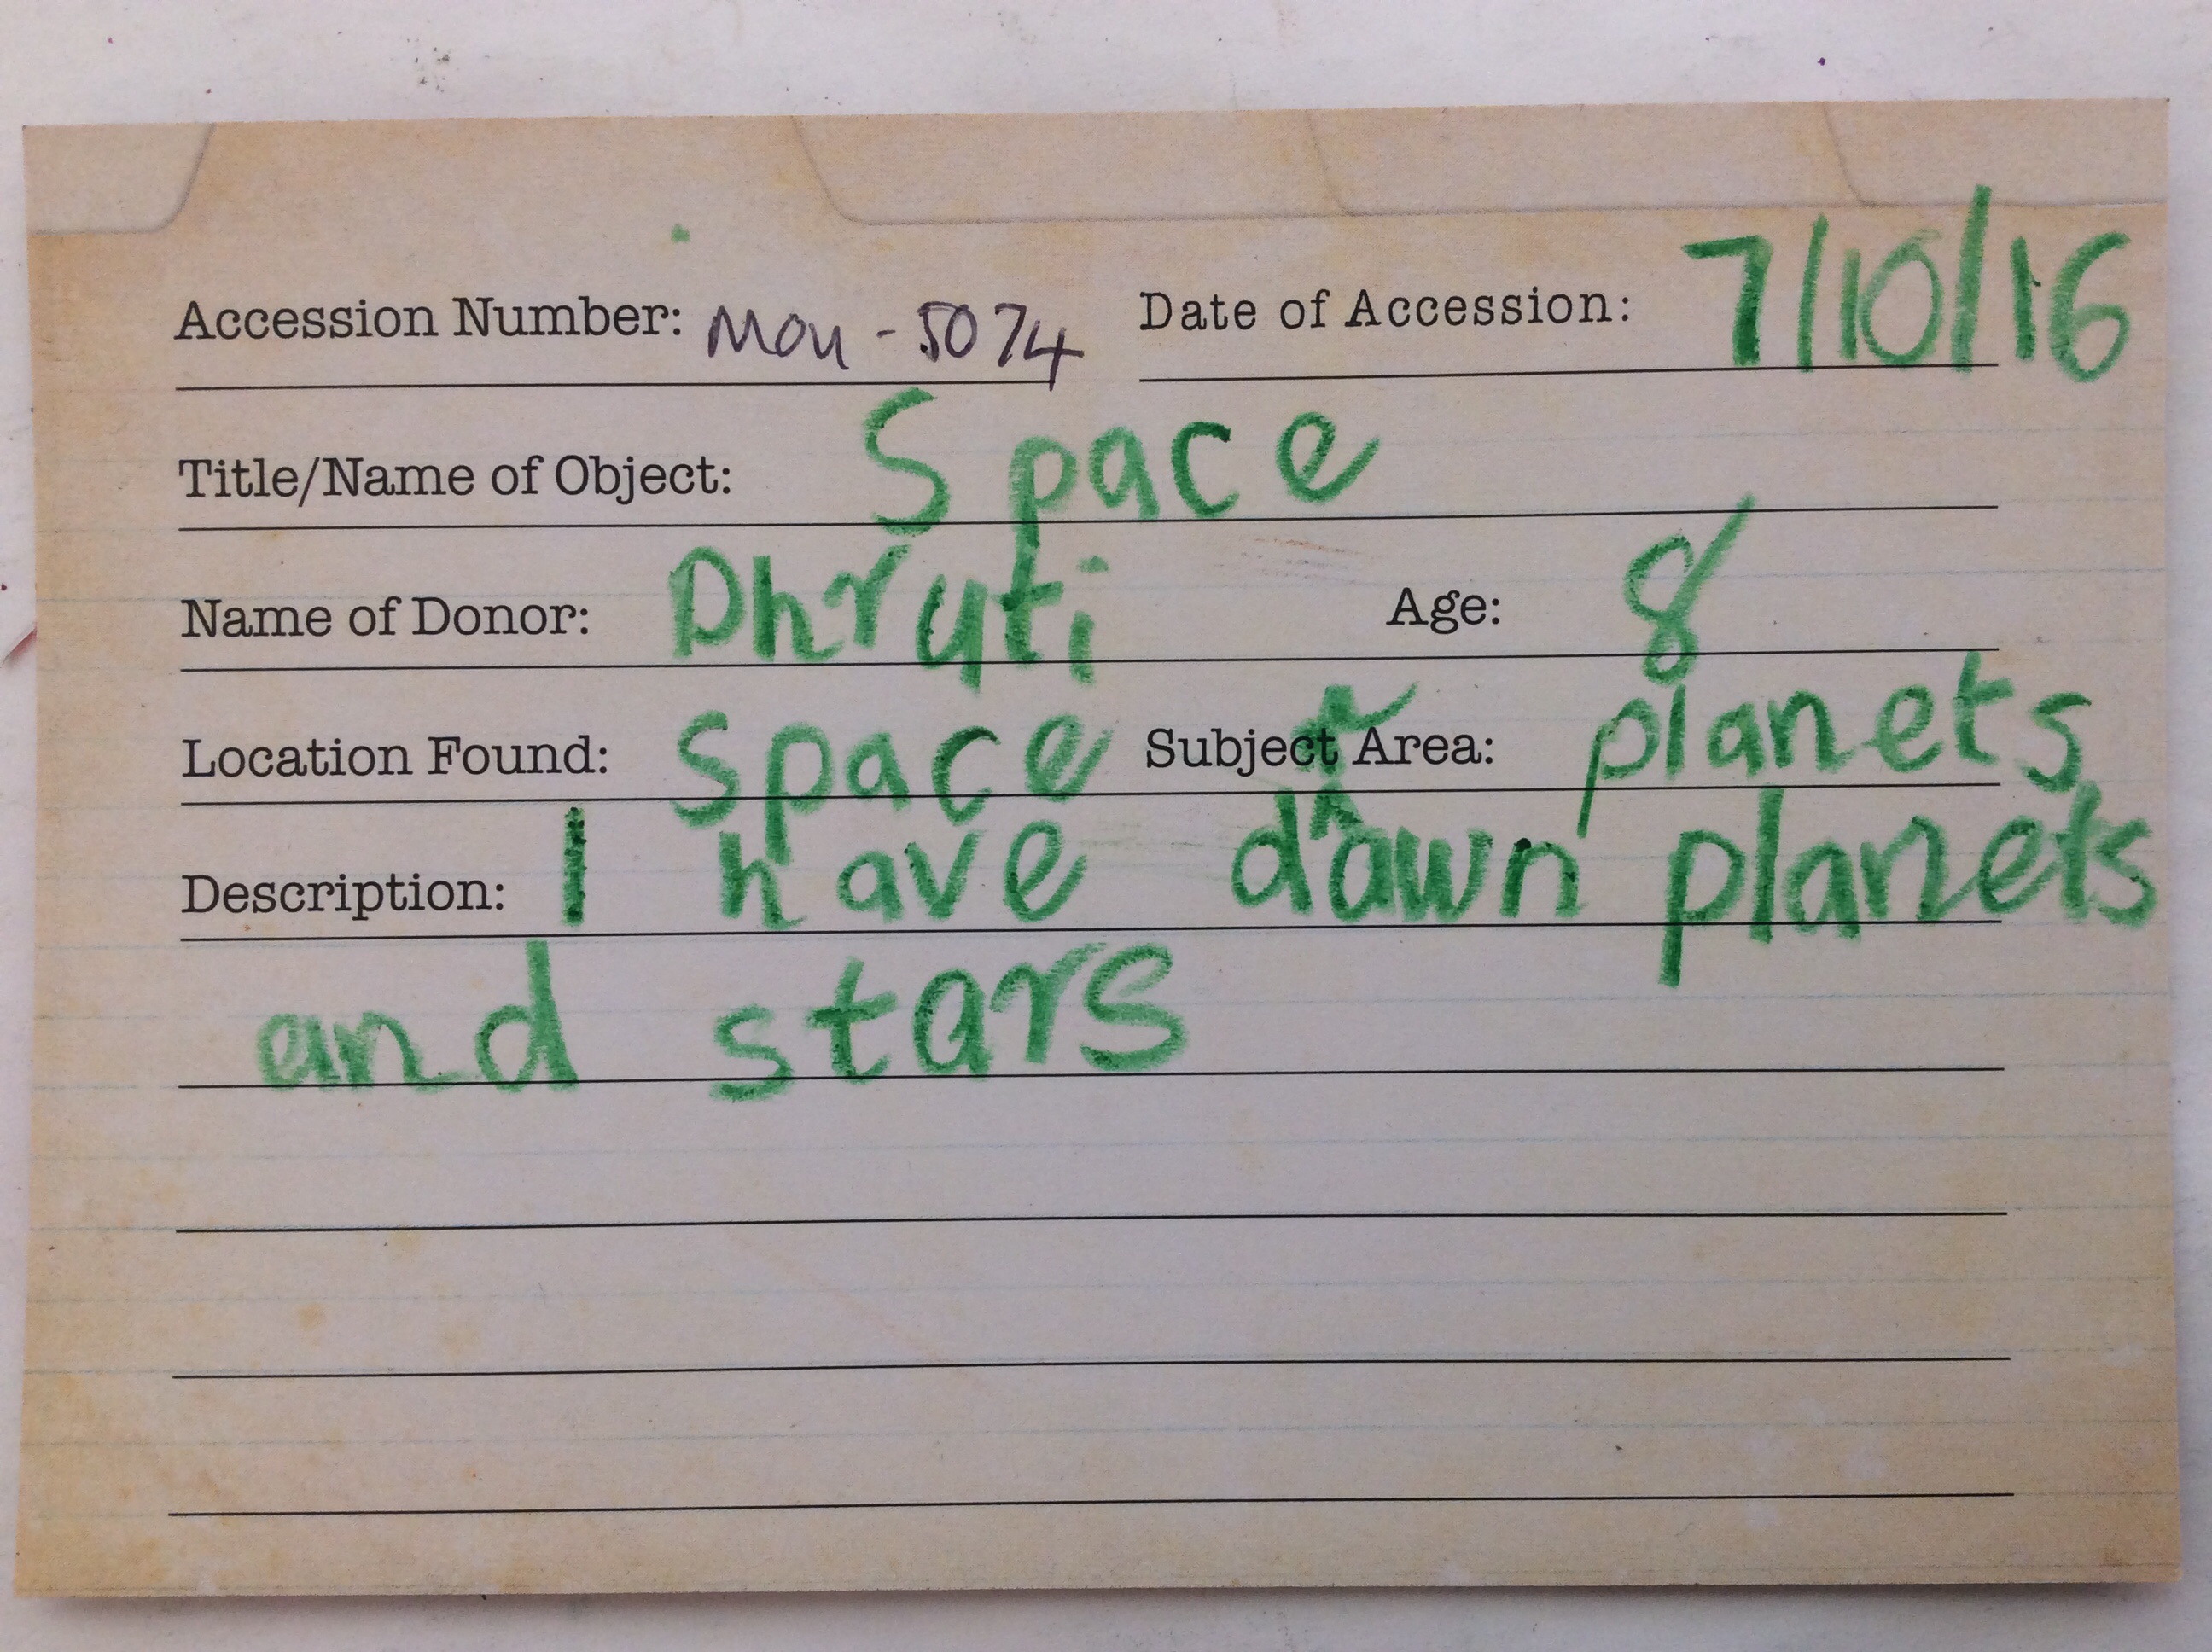 Accession Number: Mou - 5074 Date of Accession: 7/10/16
Title/Name of Object: Space
Name of Donor: Dhruti Age: 8
Location Found: Space Subject Area: planets
Description: I have drawn planets
and stars